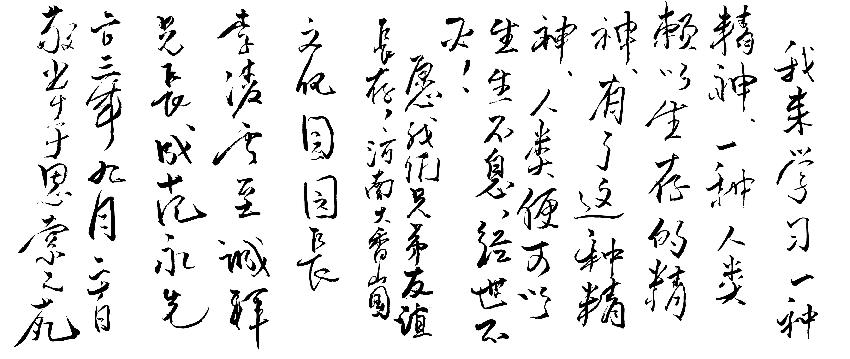 我来学习一种
精神、一种人类
赖以生存的精
神、有了这种精
神、人类便可以
生生不息、经世不
灭！
愿我们兄弟友谊
长存！河南大香山国
文化园园长
李凌云至诚拜
兄长成范永先
三年九月
敬书于思索之苑